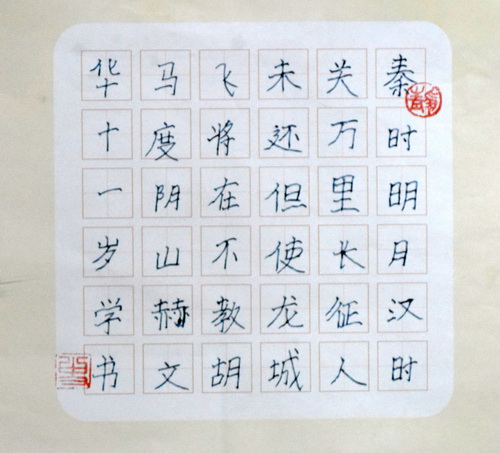 秦时明月汉时
关万里长征人
未还但使龙城
飞将在不教胡
马度阴山赫文
华十一岁学书